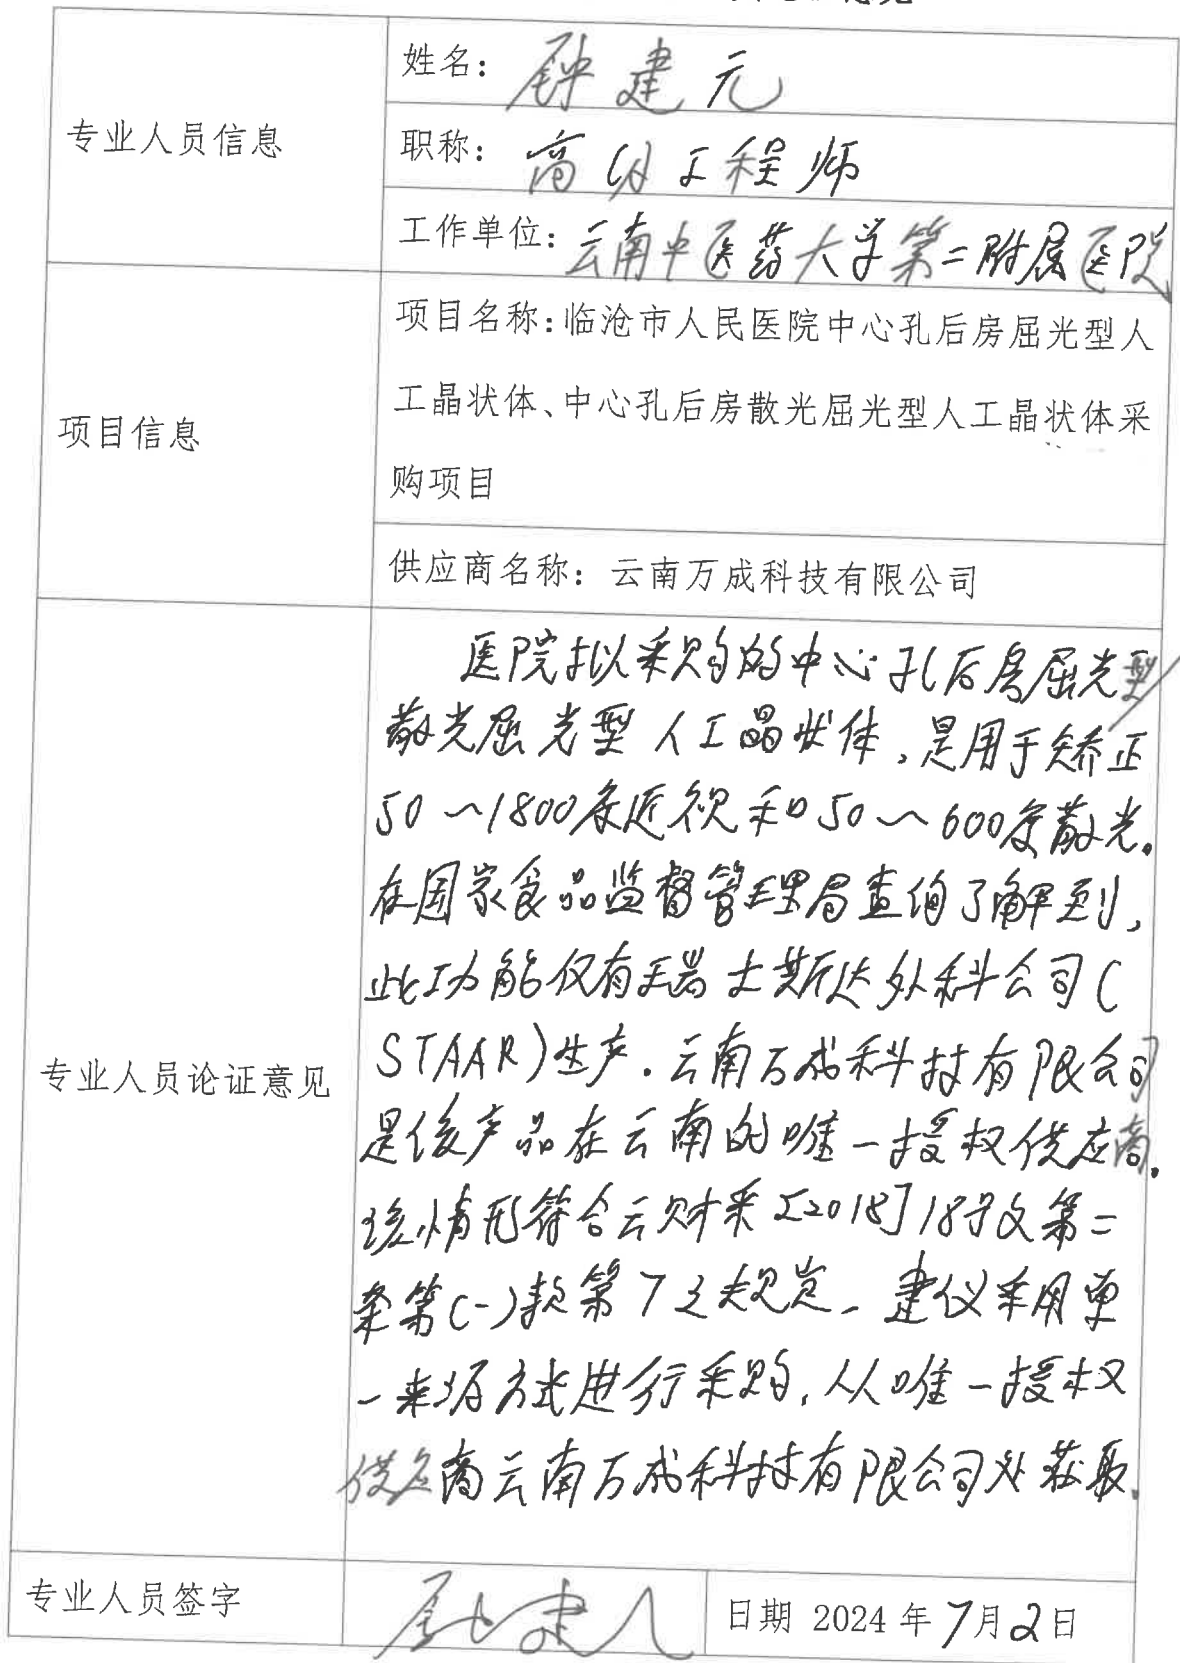 专业人员信息
姓名：钟建元
职称：高级工程师
工作单位：云南中医药大学第二附属医院
项目信息
项目名称：临沧市人民医院中心孔后房屈光型人
工晶状体、中心孔后房散光屈光型人工晶状体采
购项目
供应商名称：云南万成科技有限公司
专业人员论证意见
医院拟采购的中心孔后房屈光型
散光屈光型人工晶状体，是用于矫正
50～1800度近视和50～600度散光。
在国家食品监督管理局查询了解到，
此功能仅有瑞士斯达外科公司（
STAAR）生产。云南万成科技有限公司
是该产品在云南的唯一授权供应商。
该情形符合云财采［2018］18号文第二
条第(一)款第7之规定。建议采用单
一来源方式进行采购，从唯一授权
供应商云南万成科技有限公司处获取。
专业人员签字
日期 2024年7月2日